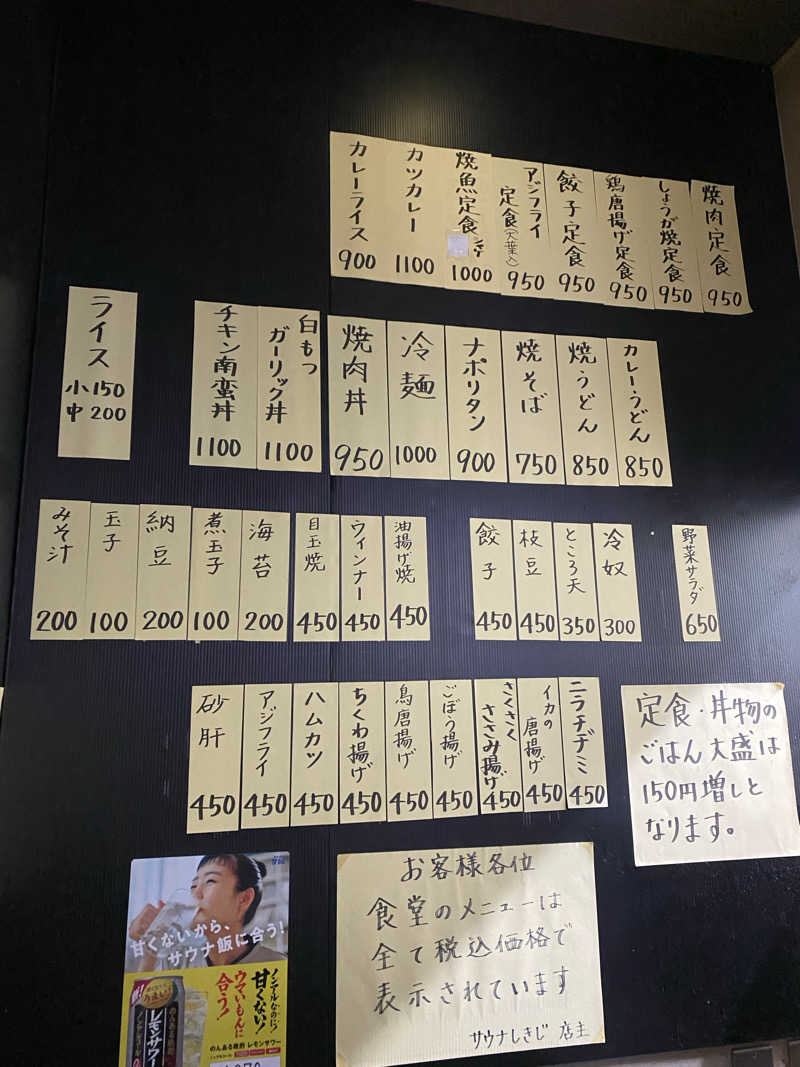 カレーライス
900
カツカレー
1100
焼魚定食
1000
アジフライ
定食(大葉入)
950
餃子定食
950
鶏唐揚げ定食
950
しょうが焼定食
950
焼肉定食
950
ライス
小 150
中 200
チキン南蛮丼
1100
白もつ
ガーリック丼
1100
焼肉丼
950
冷麺
1000
ナポリタン
900
焼そば
750
焼うどん
850
カレーうどん
850
みそ汁
200
玉子
100
納豆
200
煮玉子
100
海苔
200
目玉焼
450
ウィンナー
450
油揚げ焼
450
餃子
450
枝豆
450
ところ天
350
冷奴
300
野菜サラダ
650
砂肝
450
アジフライ
450
ハムカツ
450
ちくわ揚げ
450
鳥唐揚げ
450
ごぼう揚げ
450
さくさく
ささみ揚げ
450
イカの
唐揚げ
450
ニラチヂミ
450
定食・丼物の
ごはん大盛は
150円増しと
なります。
お客様各位
食堂のメニューは
全て税込価格で
表示されています
サウナしきじ 店主
甘くないから、
サウナ飯に合う!
ノンアルなのに!
甘くない!
ウマいもんに
合う!
のんある晩酌 レモンサワー
レモンサワー